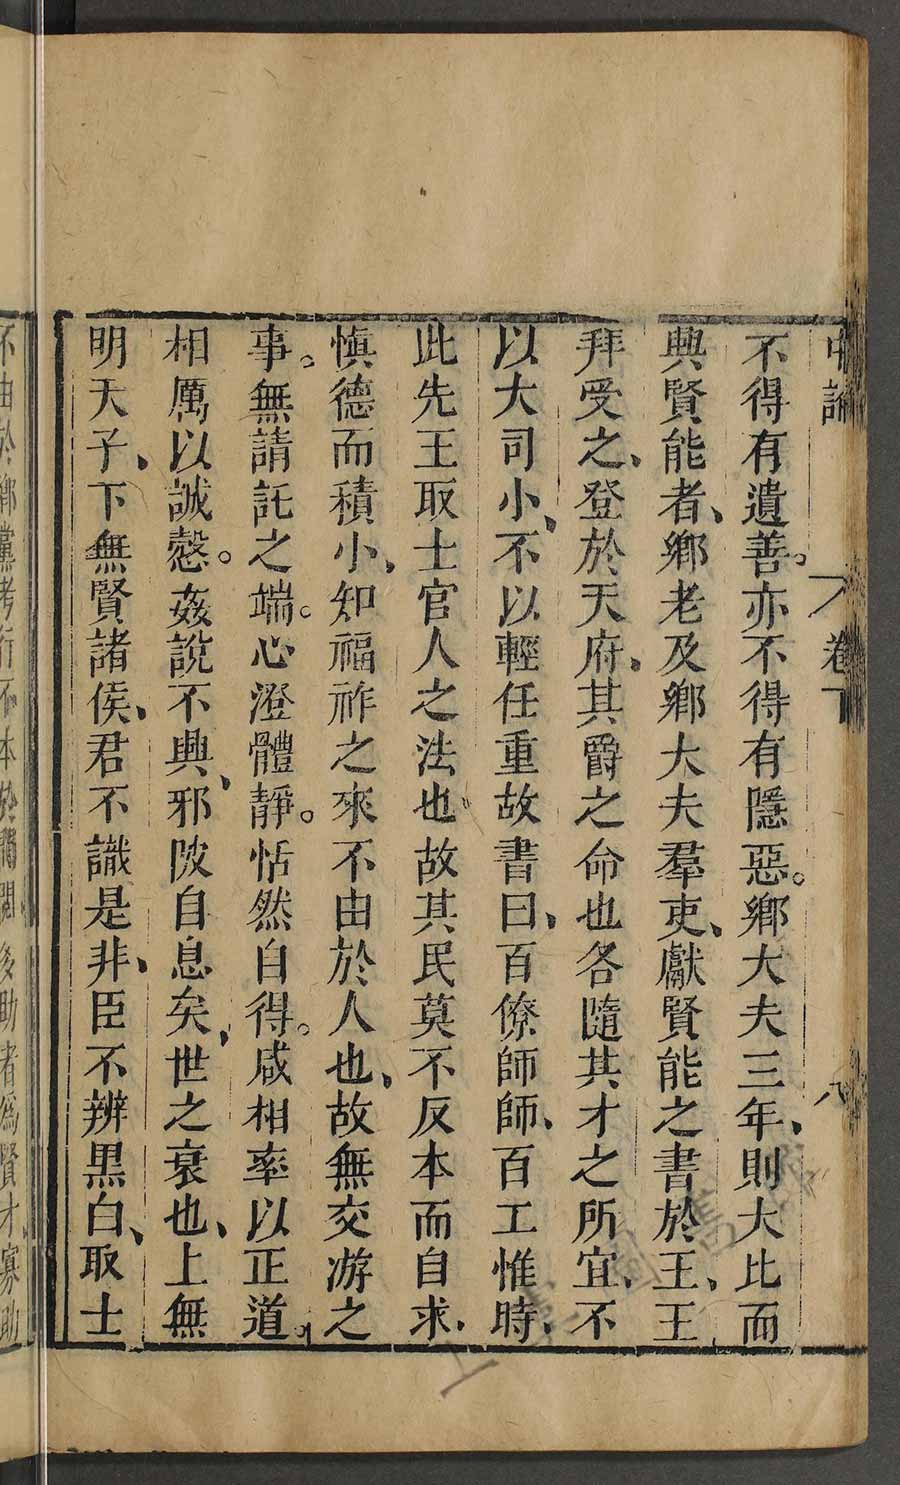 中論
卷下
八
不得有遺善。亦不得有隱惡。鄉大夫三年、則大比而
興賢能者、鄉老及鄉大夫羣吏、獻賢能之書於王、王
拜受之、登於天府、其爵之命也各隨其才之所宜、不
以大司小、不以輕任重故書曰、百僚師師、百工惟時、
此先王取士官人之法也故其民莫不反本而自求、
慎德而積小、知福祚之來不由於人也、故無交游之
事。無請託之端。心澄體靜。恬然自得。咸相率以正道。
相厲以誠慤。姦說不興、邪陂自息矣、世之衰也、上無
明天子、下無賢諸侯、君不識是非、臣不辨黑白、取士
不由於鄉黨考行不本於閥閱多助者爲賢才寡助